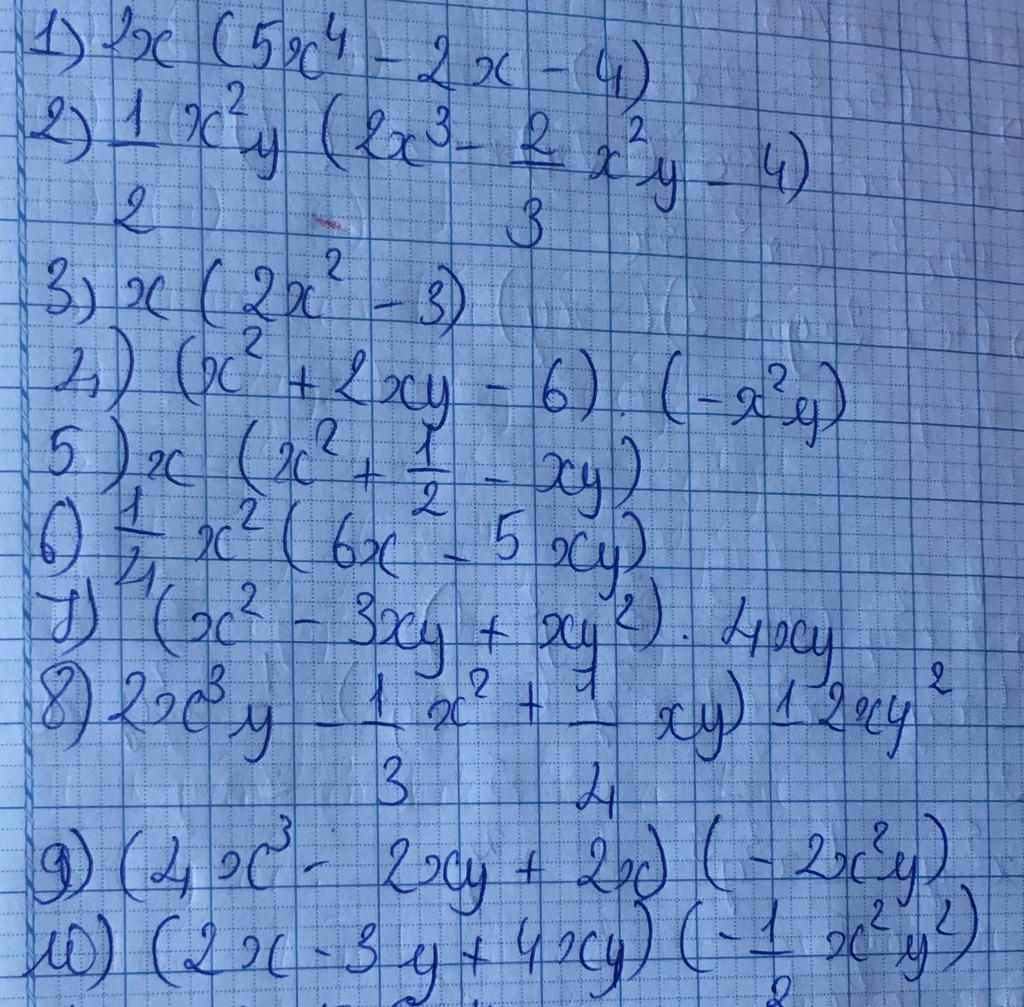 1) 2x (5x⁴ - 2x - 4)
2) 1/2 x²y (2x³ - 2/3 x²y - 4)
3) x (2x² - 3)
4) (x² + 2xy - 6) . (-x²y)
5) x (x² + 1/2 - xy)
6) 1/4 x² (6x - 5xy)
7) (x² - 3xy + xy²) . 4xy
8) 2x³y - 1/3 x² + 1/4 xy) 12xy²
9) (4x³ - 2xy + 2x) (-2x²y)
10) (2x - 3y + 4xy) (-1/2 x²y²)